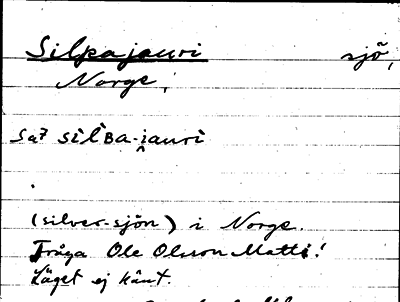 Silpajauri sjö,
Norge,
Sa7 sìlʙa-i̯auri
(silver-sjön) i Norge.
Fråga Ole Olsson Matti!
Läget ej känt.